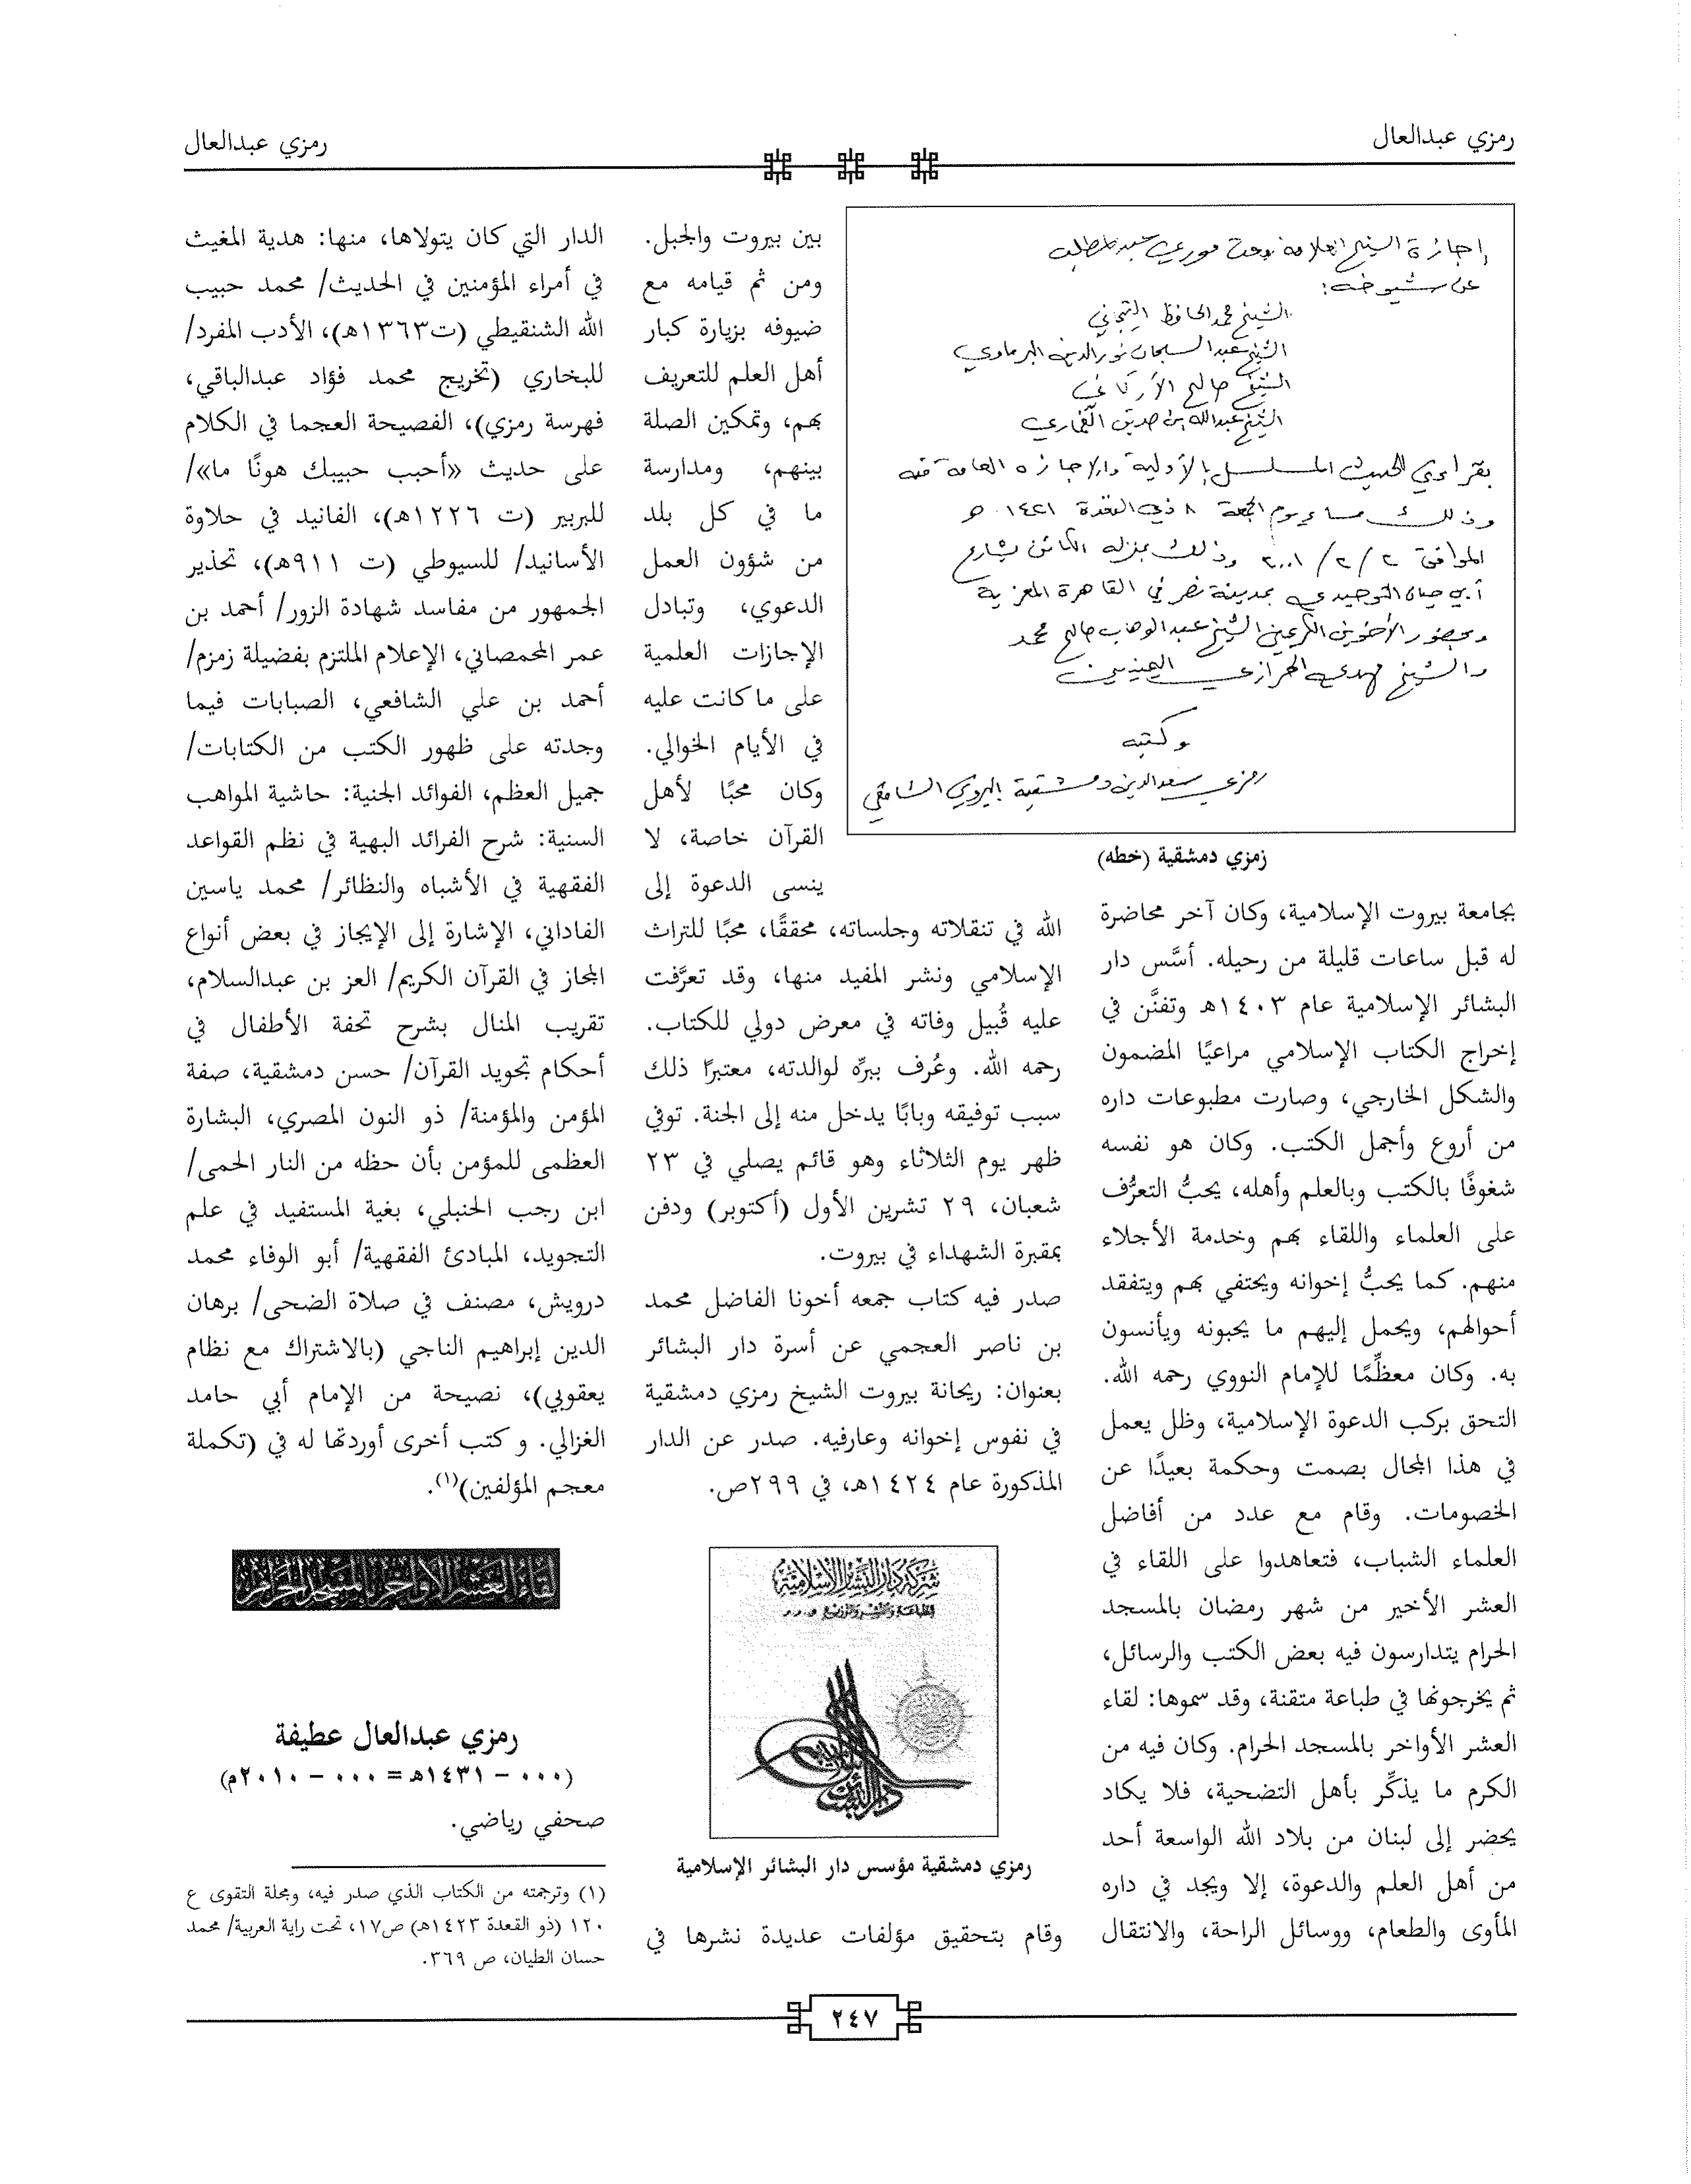 رمزي عبدالعال
رمزي عبدالعال
إجازة الشيخ العلامة رفعت فوزي عبدالمطلب
عن شيوخه:
الشيخ محمد الحافظ التيجاني
الشيخ عبد السبحان نور الدين البرماوي
الشيخ صالح الأركاني
الشيخ عبدالله بن صديق الغماري
بقراءتي الحديث المسلسل بالأولية والإجازة العامة منه
وذلك مساء يوم الجمعة ٨ ذي القعدة ١٤٢١ هـ
الموافق ٢ / ٢ / ٢٠٠١ وذلك بمنزله الكائن بشارع
أبي حيان التوحيدي بمدينة نصر في القاهرة المعزية
وبحضور الأخوين الكريمين الشيخ عبد الوهاب صالح محمد
والشيخ مهدي الحرازي اليمنيين
وكتبه
رمزي سعد الدين دمشقية البيروتي الشافعي
زمزي دمشقية (خطه)
بجامعة بيروت الإسلامية، وكان آخر محاضرة
له قبل ساعات قليلة من رحيله. أسَّس دار
البشائر الإسلامية عام ١٤٠٣هـ وتفنَّن في
إخراج الكتاب الإسلامي مراعيًا المضمون
والشكل الخارجي، وصارت مطبوعات داره
من أروع وأجمل الكتب. وكان هو نفسه
شغوفًا بالكتب وبالعلم وأهله، يحبُّ التعرُّف
على العلماء واللقاء بهم وخدمة الأجلاء
منهم. كما يحبُّ إخوانه ويحتفي بهم ويتفقد
أحوالهم، ويحمل إليهم ما يحبونه ويأنسون
به. وكان معظِّمًا للإمام النووي رحمه الله.
التحق بركب الدعوة الإسلامية، وظل يعمل
في هذا المجال بصمت وحكمة بعيدًا عن
الخصومات. وقام مع عدد من أفاضل
العلماء الشباب، فتعاهدوا على اللقاء في
العشر الأخير من شهر رمضان بالمسجد
الحرام يتدارسون فيه بعض الكتب والرسائل،
ثم يخرجونها في طباعة متقنة، وقد سموها: لقاء
العشر الأواخر بالمسجد الحرام. وكان فيه من
الكرم ما يذكِّر بأهل التضحية، فلا يكاد
يحضر إلى لبنان من بلاد الله الواسعة أحد
من أهل العلم والدعوة، إلا ويجد في داره
المأوى والطعام، ووسائل الراحة، والانتقال
بين بيروت والجبل.
ومن ثم قيامه مع
ضيوفه بزيارة كبار
أهل العلم للتعريف
بهم، وتمكين الصلة
بينهم، ومدارسة
ما في كل بلد
من شؤون العمل
الدعوي، وتبادل
الإجازات العلمية
على ماكانت عليه
في الأيام الخوالي.
وكان محبًا لأهل
القرآن خاصة، لا
ينسى الدعوة إلى
الله في تنقلاته وجلساته، محققًا، محبًا للتراث
الإسلامي ونشر المفيد منها، وقد تعرَّفت
عليه قُبيل وفاته في معرض دولي للكتاب.
رحمه الله. وعُرف ببرِّه لوالدته، معتبرًا ذلك
سبب توفيقه وبابًا يدخل منه إلى الجنة. توفي
ظهر يوم الثلاثاء وهو قائم يصلي في ٢٣
شعبان، ٢٩ تشرين الأول (أكتوبر) ودفن
بمقبرة الشهداء في بيروت.
صدر فيه كتاب جمعه أخونا الفاضل محمد
بن ناصر العجمي عن أسرة دار البشائر
بعنوان: ريحانة بيروت الشيخ رمزي دمشقية
في نفوس إخوانه وعارفيه. صدر عن الدار
المذكورة عام ١٤٢٤هـ، في ٢٩٩ص.
شركة دار البشائر الإسلامية
للطباعة والنشر والتوزيع ش.م.م
دار البشائر
رمزي دمشقية مؤسس دار البشائر الإسلامية
وقام بتحقيق مؤلفات عديدة نشرها في
الدار التي كان يتولاها، منها: هدية المغيث
في أمراء المؤمنين في الحديث/ محمد حبيب
الله الشنقيطي (ت١٣٦٣هـ)، الأدب المفرد/
للبخاري (تخريج محمد فؤاد عبدالباقي،
فهرسة رمزي)، الفصيحة العجما في الكلام
على حديث «أحبب حبيبك هونًا ما»/
للبربير (ت ١٢٢٦هـ)، الفانيد في حلاوة
الأسانيد/ للسيوطي (ت ٩١١هـ)، تحذير
الجمهور من مفاسد شهادة الزور/ أحمد بن
عمر المحمصاني، الإعلام الملتزم بفضيلة زمزم/
أحمد بن علي الشافعي، الصبابات فيما
وجدته على ظهور الكتب من الكتابات/
جميل العظم، الفوائد الجنية: حاشية المواهب
السنية: شرح الفرائد البهية في نظم القواعد
الفقهية في الأشباه والنظائر/ محمد ياسين
الفاداني، الإشارة إلى الإيجاز في بعض أنواع
المجاز في القرآن الكريم/ العز بن عبدالسلام،
تقريب المنال بشرح تحفة الأطفال في
أحكام تجويد القرآن/ حسن دمشقية، صفة
المؤمن والمؤمنة/ ذو النون المصري، البشارة
العظمى للمؤمن بأن حظه من النار الحمى/
ابن رجب الحنبلي، بغية المستفيد في علم
التجويد، المبادئ الفقهية/ أبو الوفاء محمد
درويش، مصنف في صلاة الضحى/ برهان
الدين إبراهيم الناجي (بالاشتراك مع نظام
يعقوبي)، نصيحة من الإمام أبي حامد
الغزالي. و كتب أخرى أوردتها له في (تكملة
معجم المؤلفين)(١).
لقاء العشر الأواخر بالمسجد الحرام
رمزي عبدالعال عطيفة
(٠٠٠ - ١٤٣١هـ = ٠٠٠ - ٢٠١٠م)
صحفي رياضي.
(١) وترجمته من الكتاب الذي صدر فيه، ومجلة التقوى ع
١٢٠ (ذو القعدة ١٤٢٣هـ) ص١٧، تحت راية العربية/ محمد
حسان الطيان، ص ٣٦٩.
٢٤٧